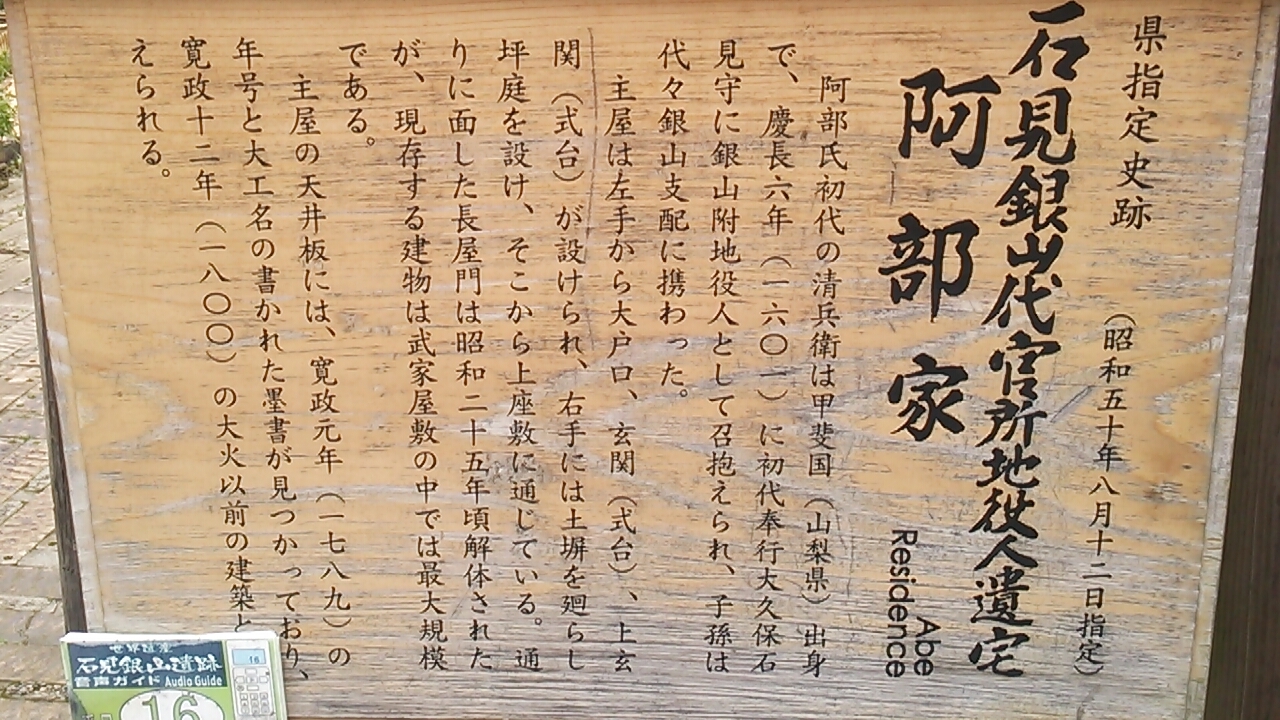 県指定史跡
(昭和五十年八月十二日指定)
石見銀山代官所地役人遺宅
阿部家
Abe
Residence
阿部氏初代の清兵衛は甲斐国(山梨県)出身
で、慶長六年(一六〇一)に初代奉行大久保石
見守に銀山附地役人として召抱えられ、子孫は
代々銀山支配に携わった。
主屋は左手から大戸口、玄関(式台)、上玄
関(式台)が設けられ、右手には土塀を廻らし
坪庭を設け、そこから上座敷に通じている。通
りに面した長屋門は昭和二十五年頃解体された
が、現存する建物は武家屋敷の中では最大規模
である。
主屋の天井板には、寛政元年(一七八九)の
年号と大工名の書かれた墨書が見つかっており、
寛政十二年(一八〇〇)の大火以前の建築と
えられる。
世界遺産
石見銀山遺跡
音声ガイド Audio Guide
16
16